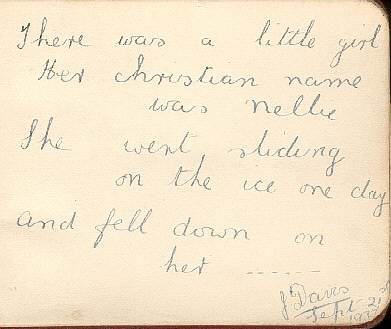 There was a little girl
Her christian name
was Nellie
She went sliding
on the ice one day
and fell down on
her ------
J Davis
Sept - 21st